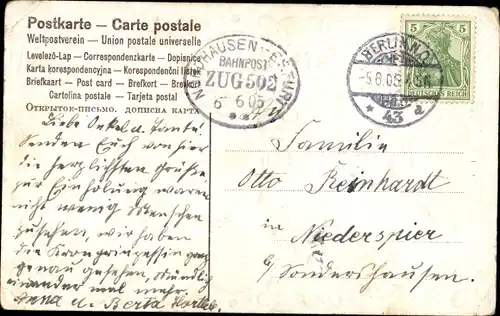 Postkarte — Carte postale
Weltpostverein — Union postale universelle
Levelező-Lap — Correspondenzkarte — Dopisnice
Karta korespondencyjna — Korespondenční lístek
Briefkaart — Post card — Brefkort — Brevkort
Cartolina postale — Tarjeta postal
Открытое-письмо. дописна карта
BAHNPOST
ZUG 502
6 6 05
BERLIN N.O.
43 a
5 5
DEUTSCHES REICH
Liebe Onkel u. Tante!
Senden Euch von hier
die herzlichsten Grüße,
zur Einholung waren
nicht wenig Menschen
zusehen, wir haben
die Kronprinzessin ganz
genau gesehen, Mündlig
einander mal mehr.
Anna u. Berta
Familie
Otto Reinhardt
in Niederspier
b/ Sondershausen.